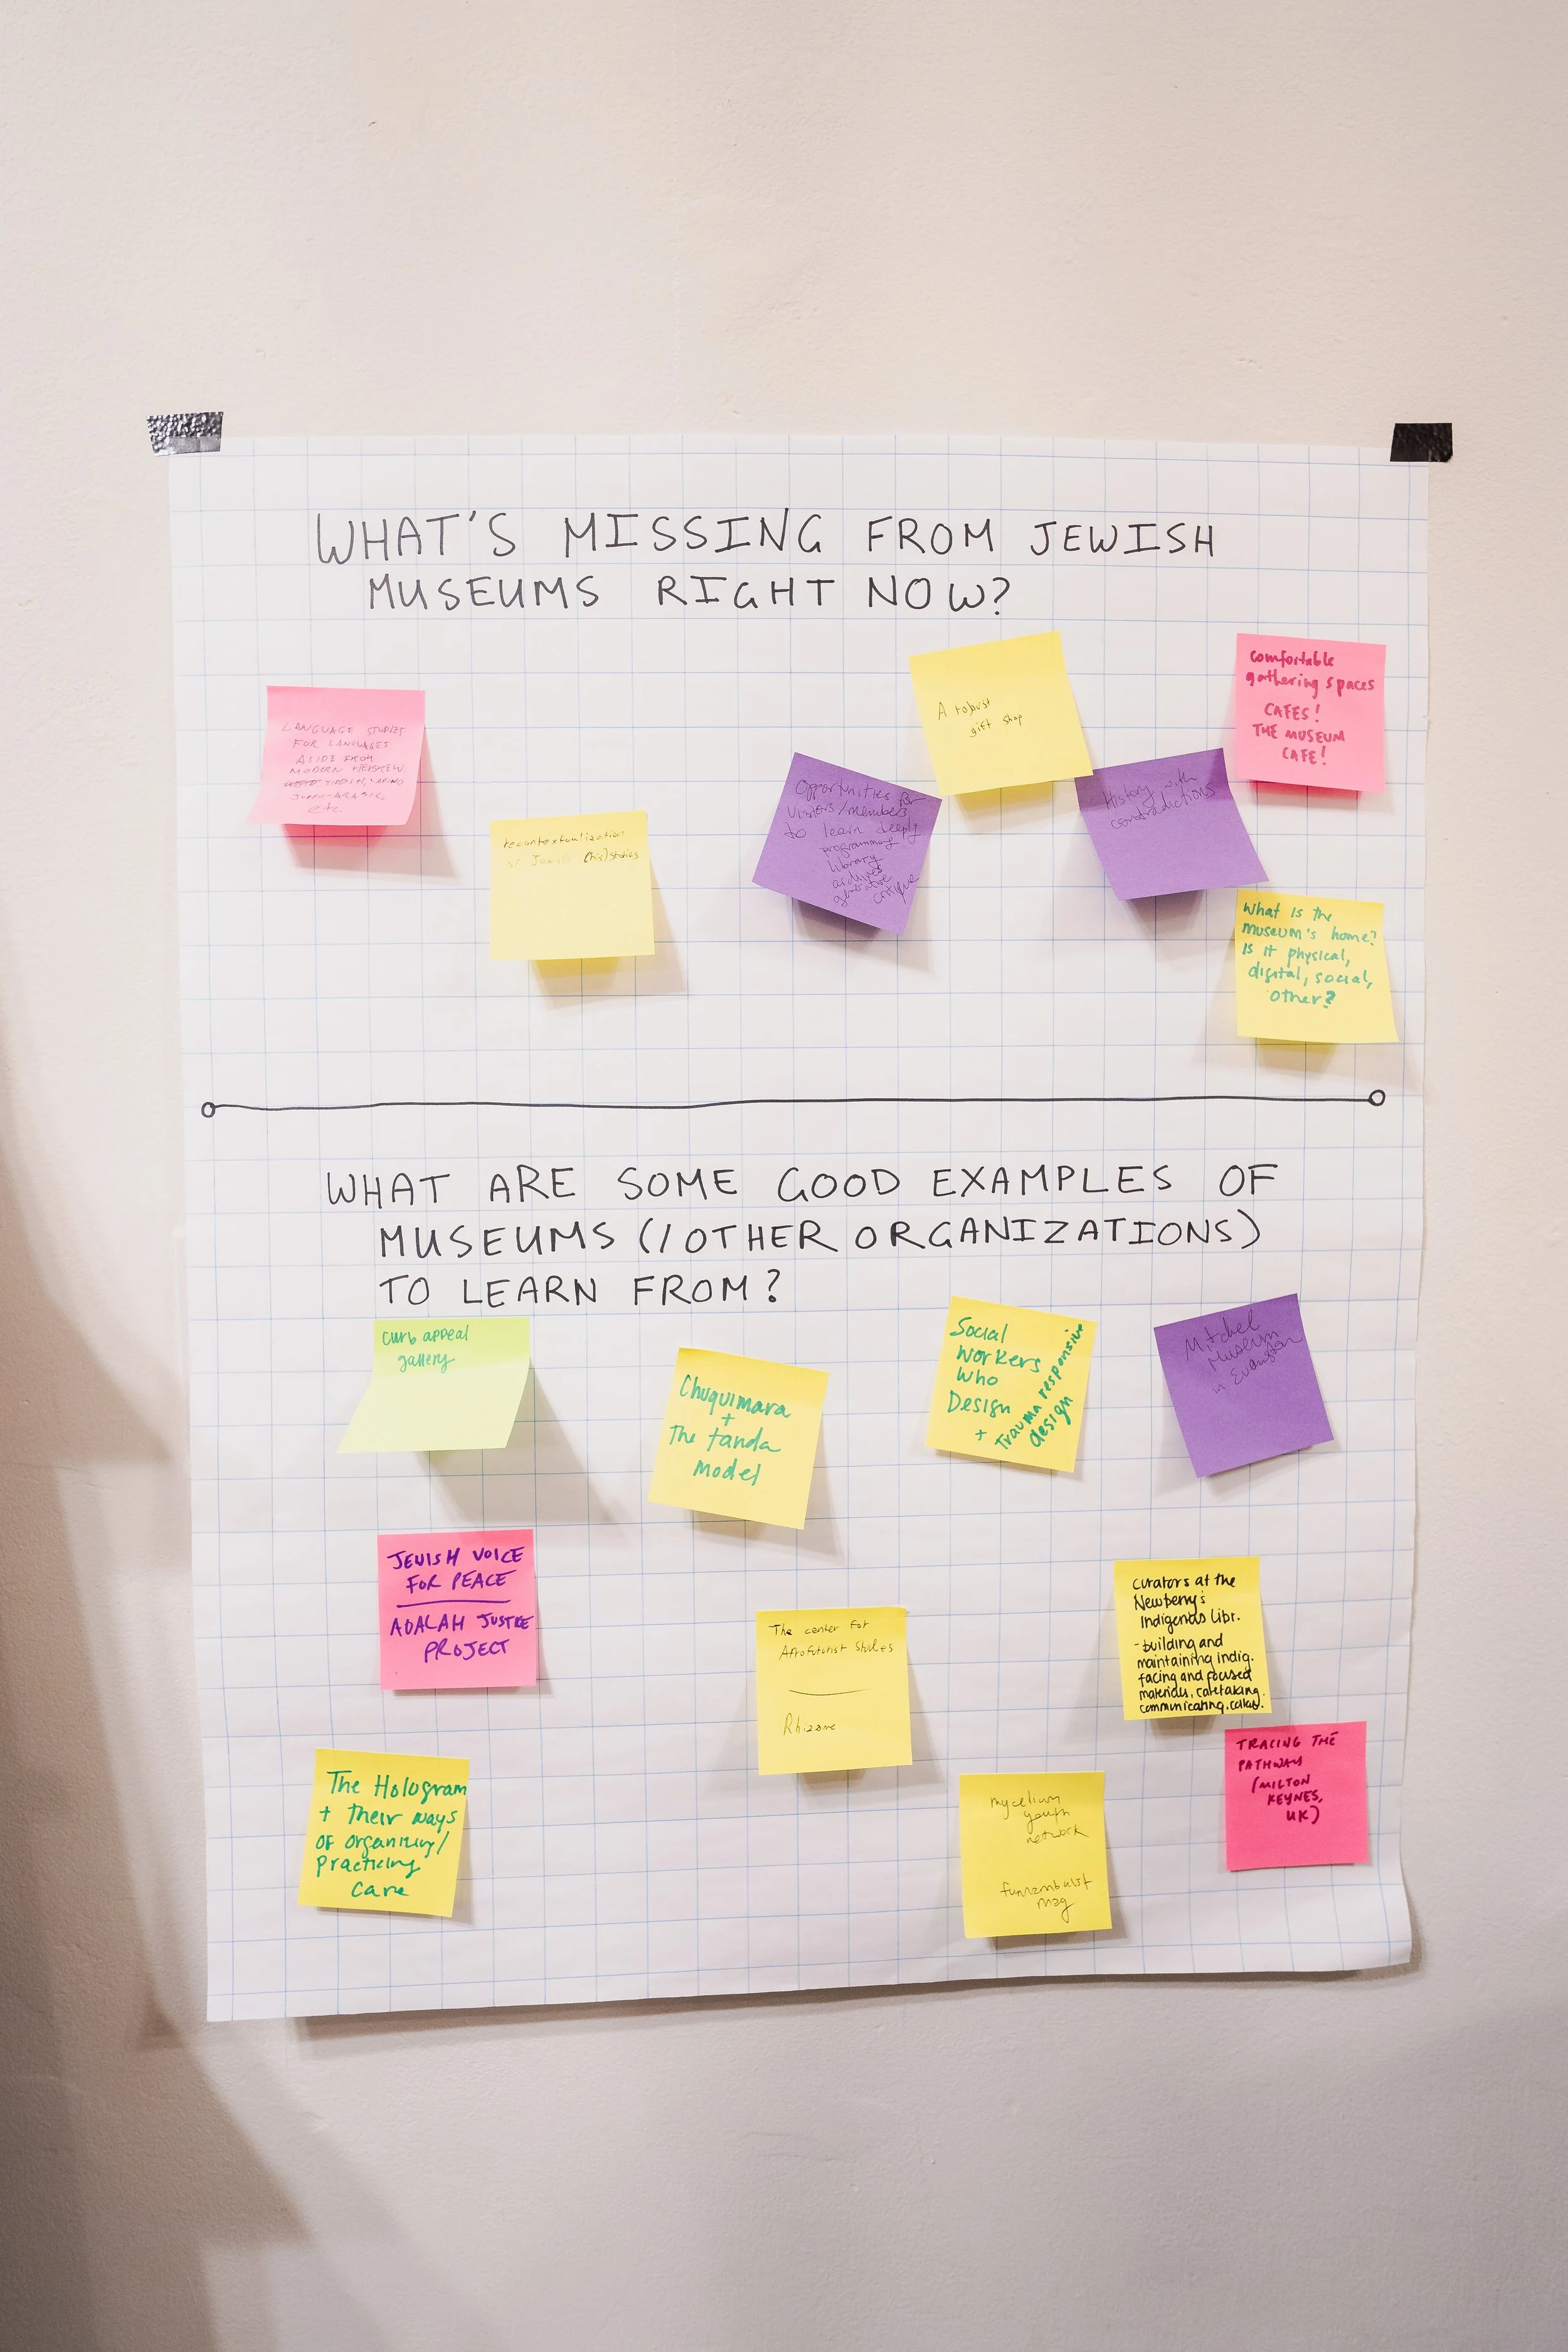 WHAT'S MISSING FROM JEWISH
MUSEUMS RIGHT NOW?
LANGUAGE STUDIES
FOR LANGUAGES
ASIDE FROM
MODERN HEBREW.
YIDDISH, LADINO
JUDEO-ARABIC,
etc.
recontextualization
of Jewish (his)stories
Opportunities for
visitors/members
to learn deeply
programming
library
archives
generative
critique
A robust
gift shop
History with
contradictions
comfortable
gathering spaces
CAFES!
THE MUSEUM
CAFE!
What is the
museum's home?
Is it physical,
digital, social,
other?
WHAT ARE SOME GOOD EXAMPLES OF
MUSEUMS (/OTHER ORGANIZATIONS)
TO LEARN FROM?
curb appeal
gallery
Chuquimara
+
The tanda
model
Social
Workers
Who
Design
+ trauma responsive
design
Mitchel
Museum
in Evanston
JEWISH VOICE
FOR PEACE
ADALAH JUSTICE
PROJECT
The center for
Afrofuturist Studies
Rhizome
curators at the
Newberry's
Indigenous Libr.
- building and
maintaining indig.
facing and focused
materials, caretaking.
communicating. collab.
TRACING THE
PATHWAY
(MILTON
KEYNES,
UK)
The Hologram
+ their ways
of organizing/
practicing
care
mycelium
youth
network
funambulist
mag